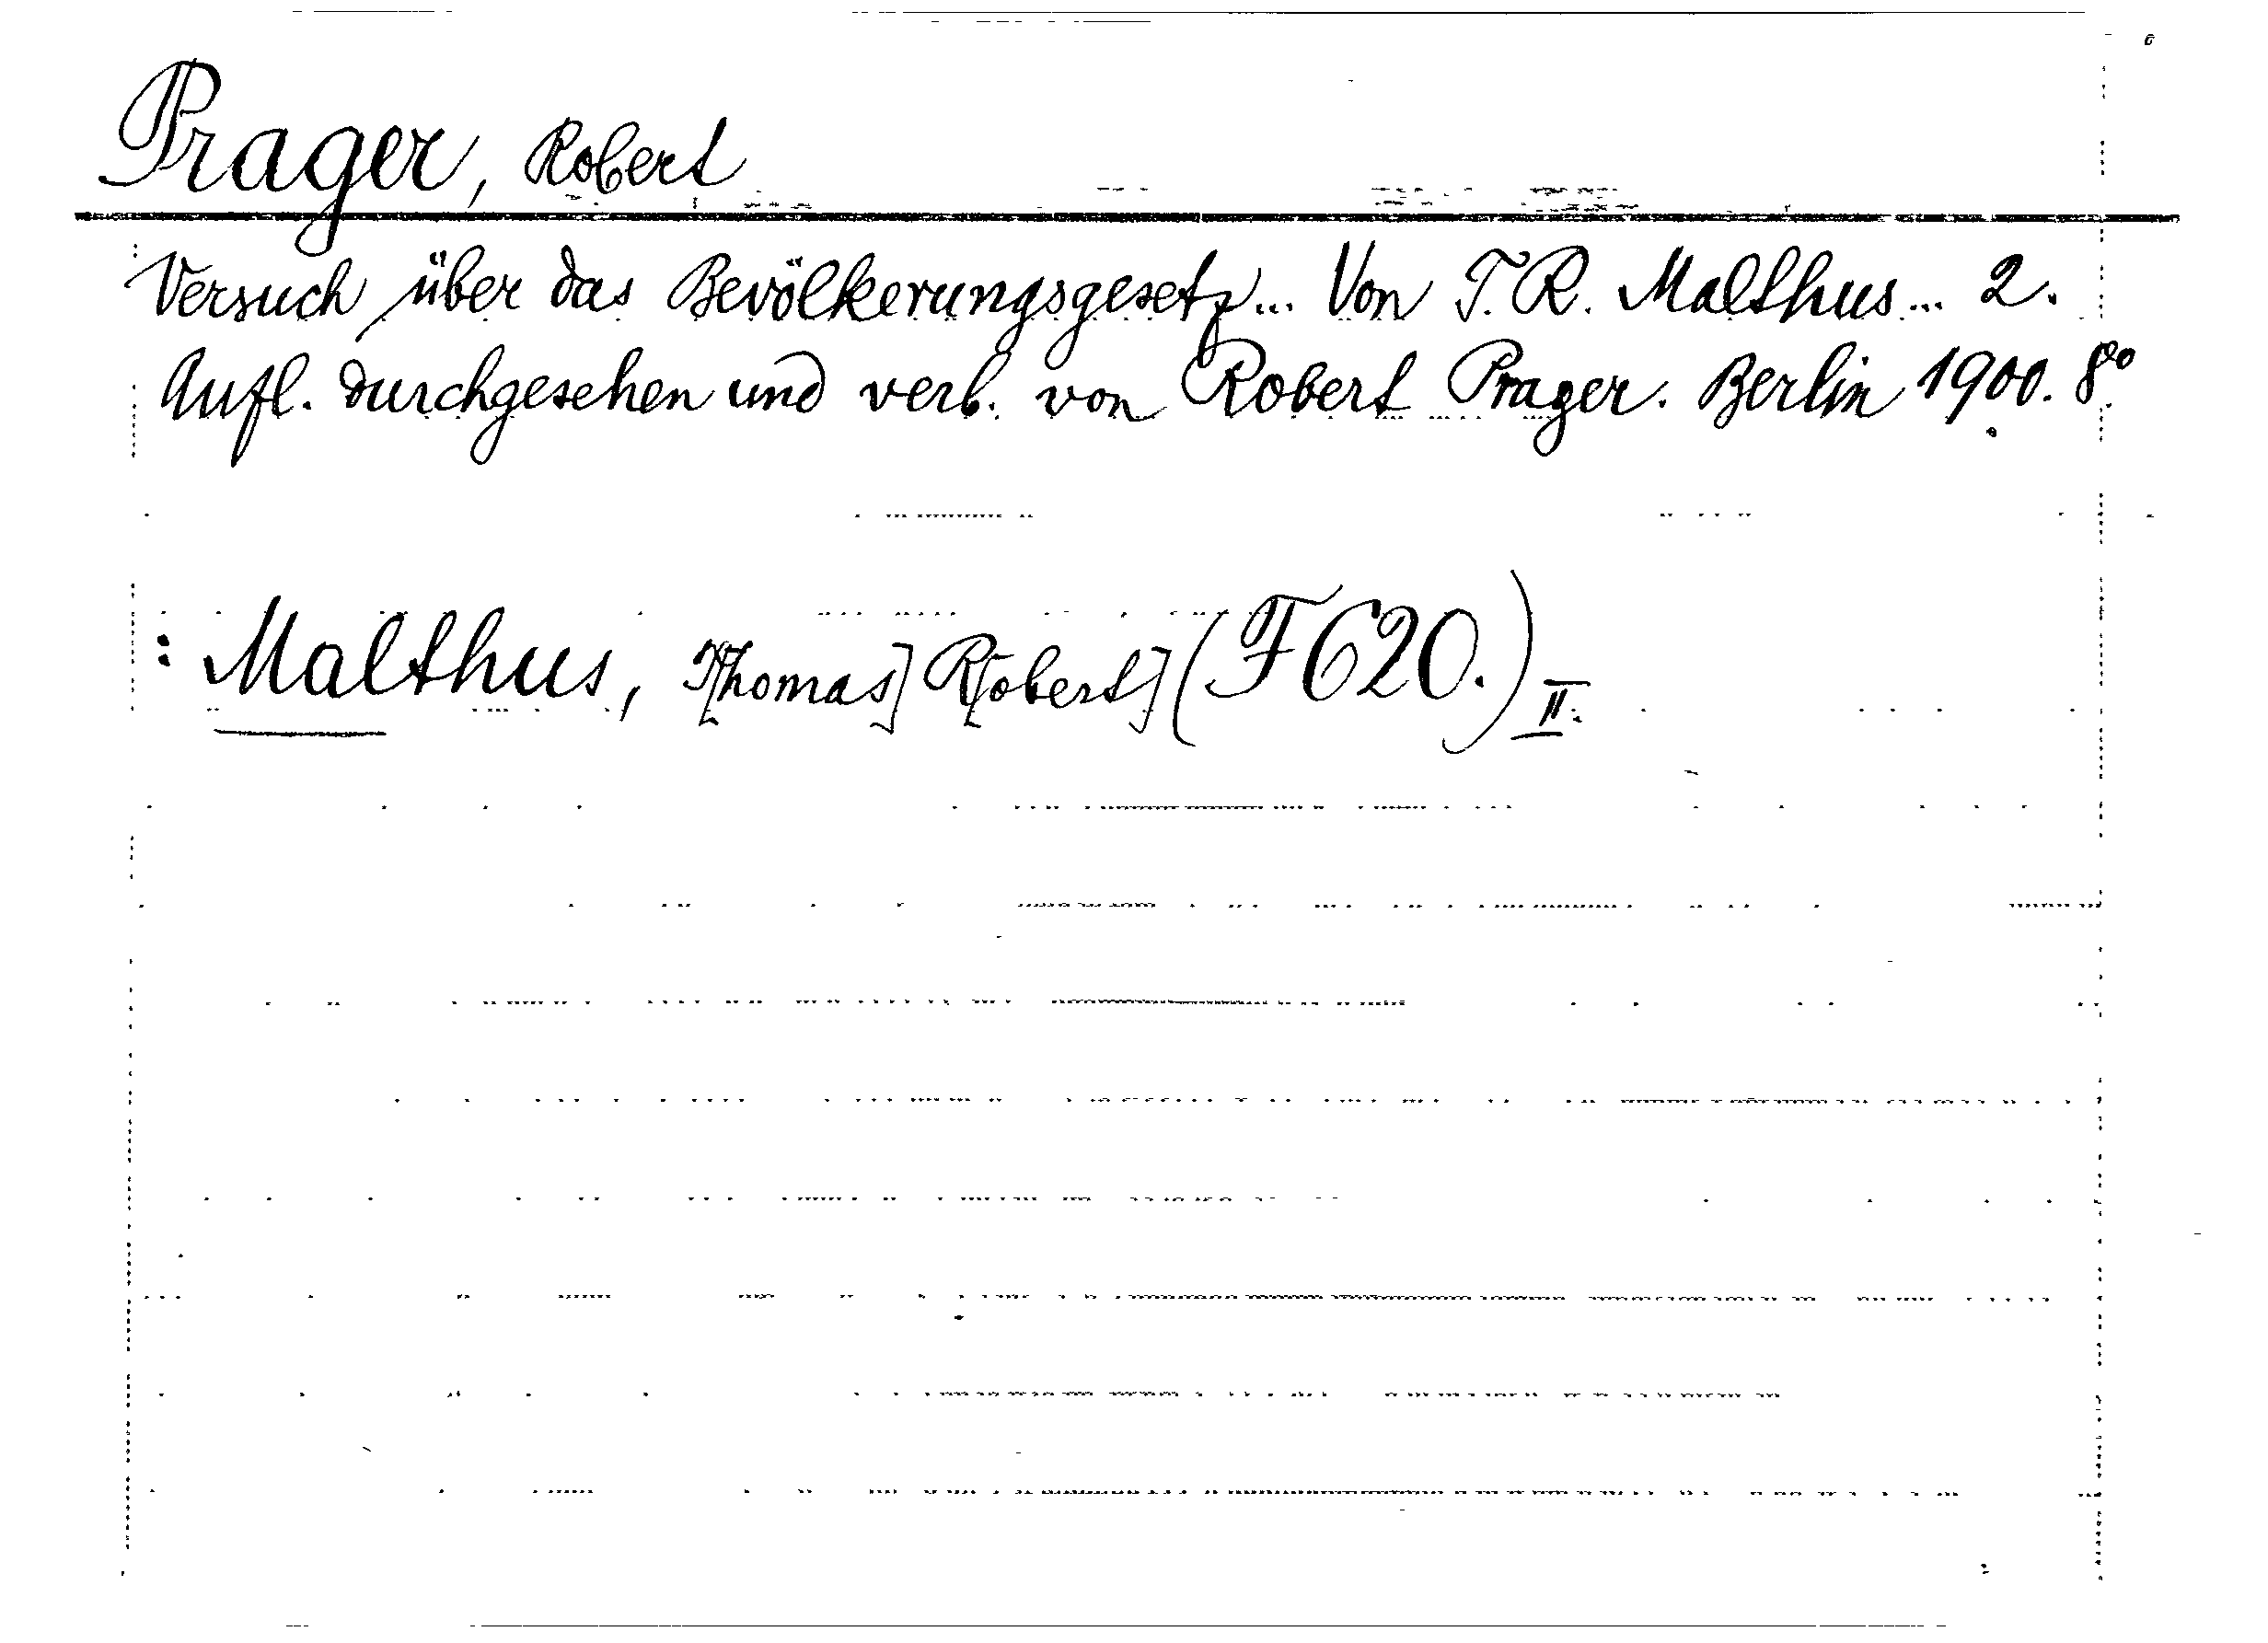 Prager, Robert
Versuch über das Bevölkerungsgesetz... Von T. R. Malthus... 2.
Aufl. durchgesehen und verb. von Robert Prager. Berlin 1900. 8°.
: Malthus, T[homas] R[obert] (F 620.) II.